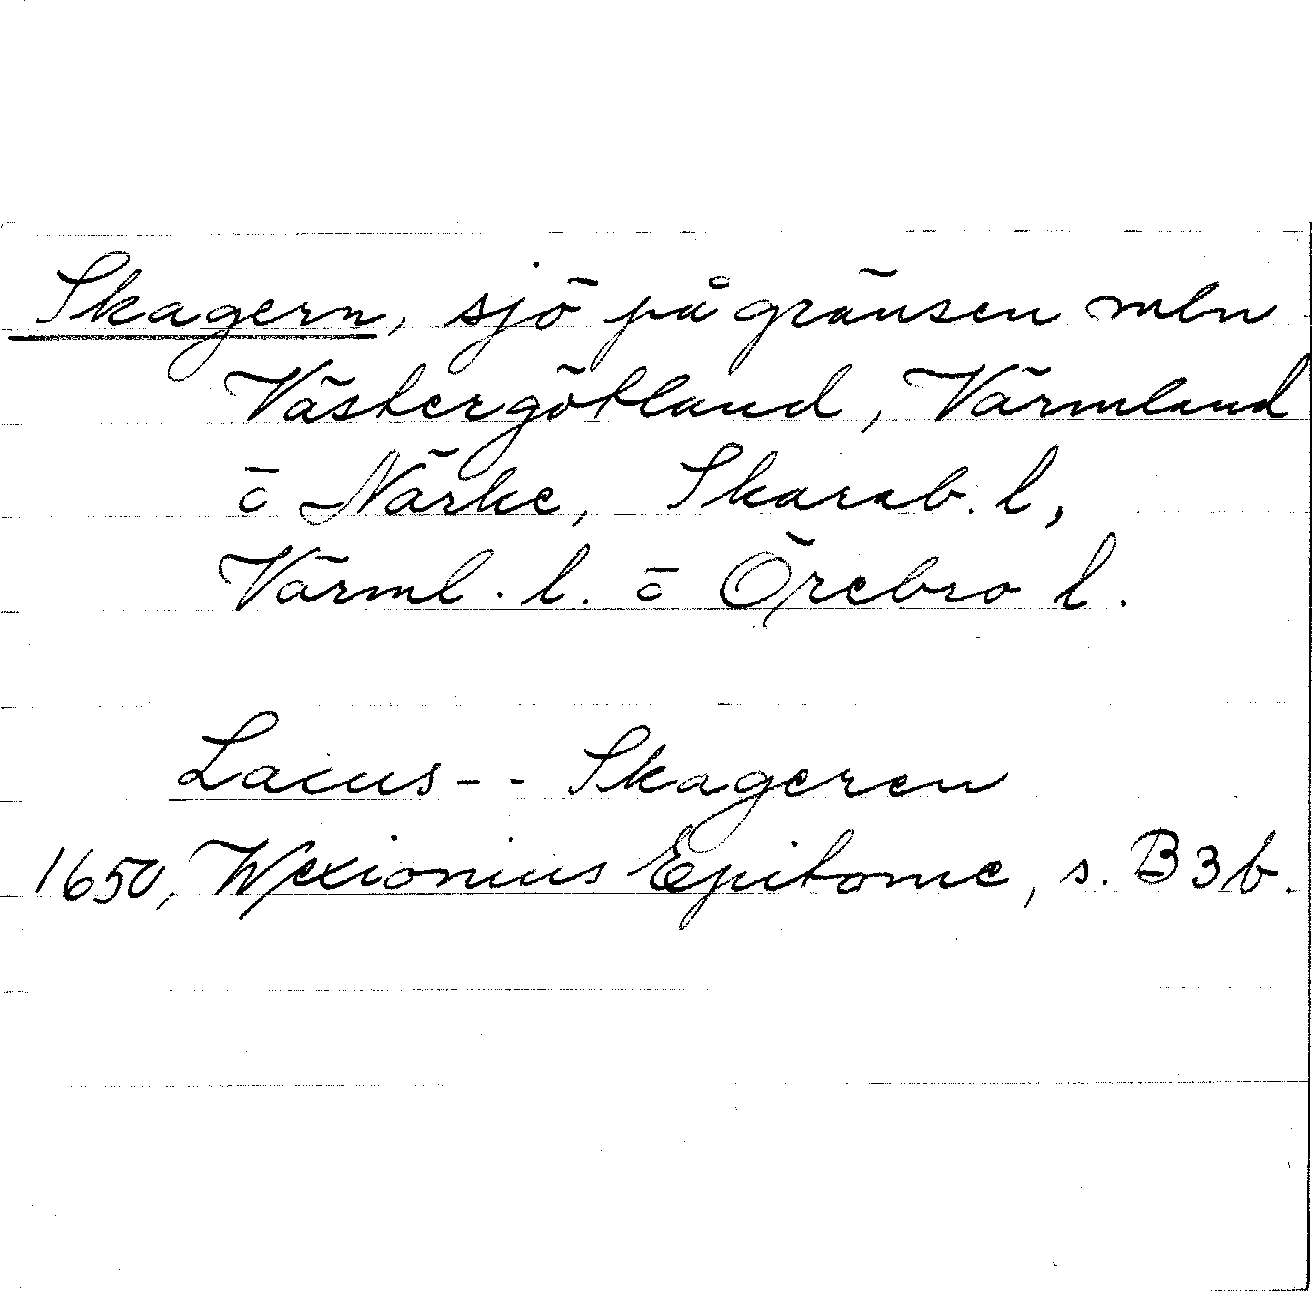 Skagern, sjö på gränsen mln
Västergötland, Värmland
o Närke, Skarab. l,
Värml. l. o Örebro l.
Lacus - - Skageren
1650, Wexionius Epitome, s. B3b.